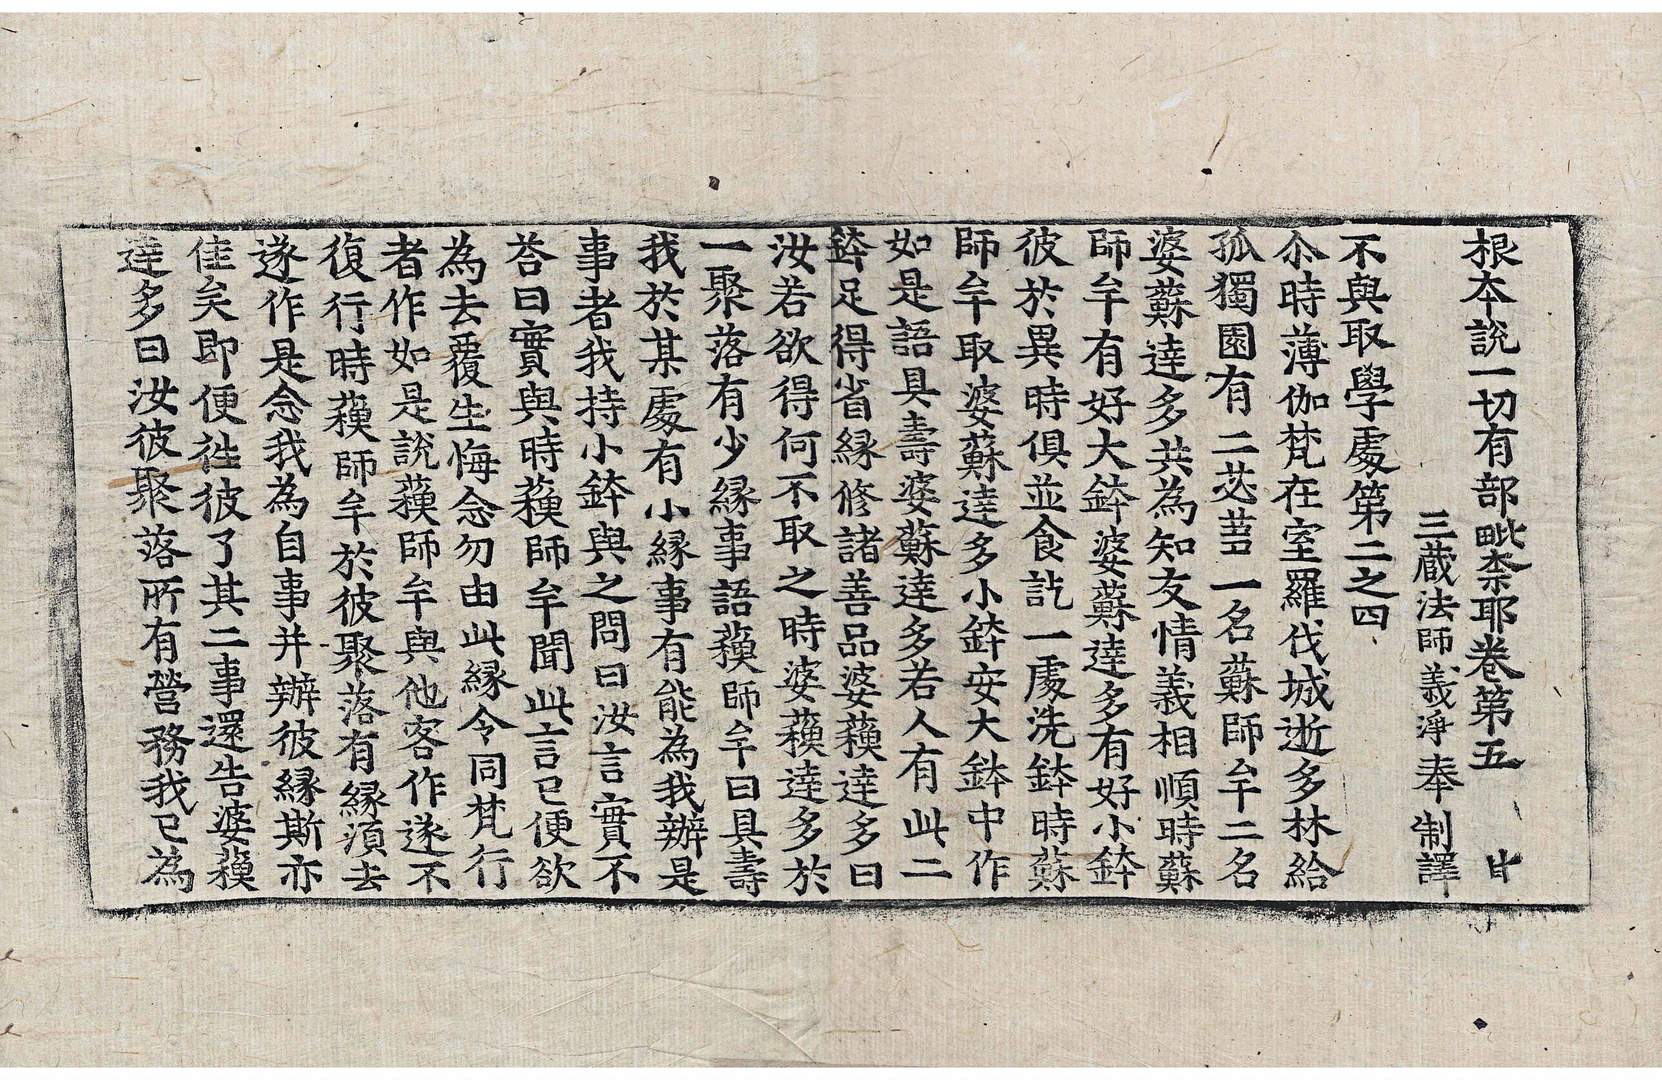 根本說一切有部毗柰耶卷第五　甘
三蔵法師義淨奉制譯
不與取學處第二之四
尒時薄伽梵在室羅伐城逝多林給
孤獨園有二苾蒭一名蘇師牟二名
婆蘇達多共為知友情義相順時蘇
師牟有好大鉢婆蘇達多有好小鉢
彼於異時俱並食訖一處洗鉢時蘇
師牟取婆蘇達多小鉢安大鉢中作
如是語具壽婆蘇達多若人有此二
鉢足得省縁修諸善品婆蘇達多曰
汝若欲得何不取之時婆蘇達多於
一聚落有少縁事語蘇師牟曰具壽
我於某處有小縁事有能為我辦是
事者我持小鉢與之問曰汝言實不
荅曰實與時蘇師牟聞此言已便欲
為去覆生悔念勿由此縁令同梵行
者作如是說蘇師牟與他客作遂不
復行時蘇師牟於彼聚落有縁須去
遂作是念我為自事并辦彼縁斯亦
佳矣即便徃彼了其二事還告婆蘇
達多曰汝彼聚落所有營務我已為